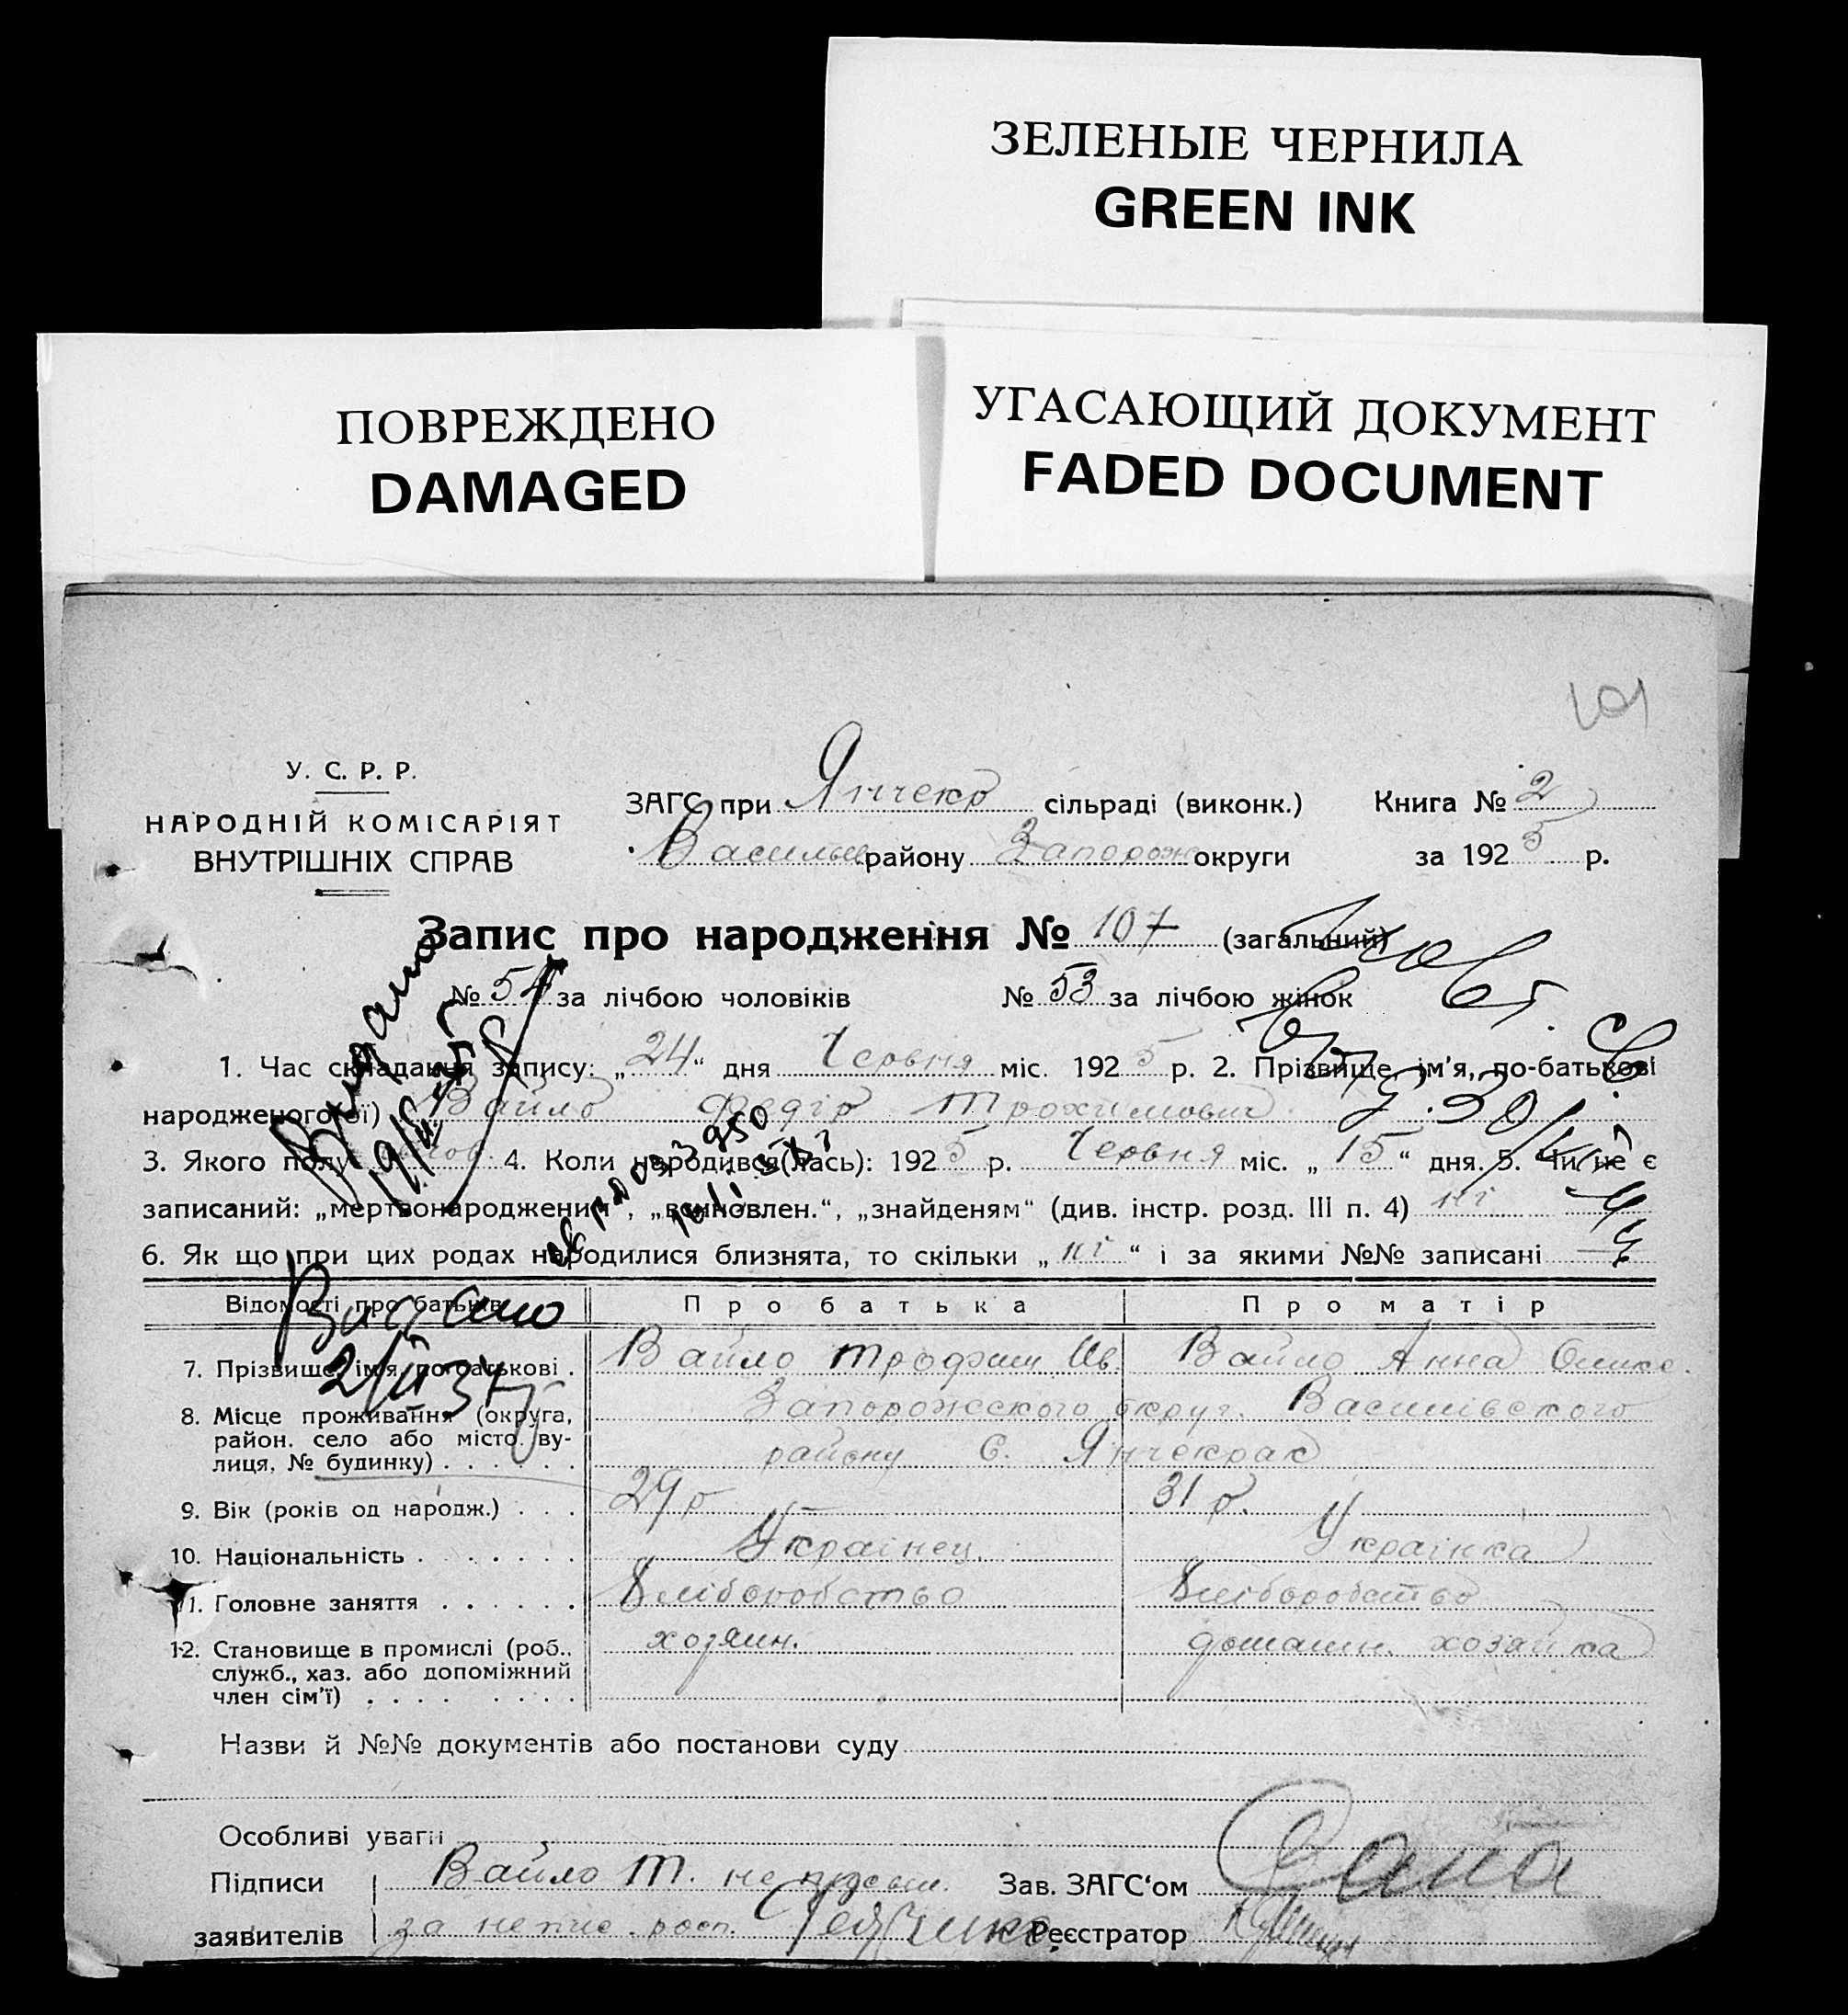 ЗЕЛЕНЫЕ ЧЕРНИЛА
GREEN INK
ПОВРЕЖДЕНО
DAMAGED
УГАСАЮЩИЙ ДОКУМЕНТ
FADED DOCUMENT
101
У. С. Р. Р.
НАРОДНІЙ КОМІСАРІЯТ
ВНУТРІШНІХ СПРАВ
ЗАГС при Янчекр сільраді (виконк.) Книга № 2
Васильев району Запорож округи за 1925 р.
Запис про народження № 107 (загальний)
№ 54 за лічбою чоловіків № 53 за лічбою жінок
1. Час складання запису: „24“ дня Червня міс. 1925 р. 2. Прізвище, ім'я, по-батькові
народженого(ої) Вайло Федір Трохимович
3. Якого полу 4. Коли народився(лась): 1925 р. Червня міс. „15“ дня. 5. Чи не є
записаний: „мертвонародженим“, „всиновлен.“, „знайденям“ (див. інстр. розд. III п. 4) ні
6. Як що при цих родах народилися близнята, то скільки „ні“ і за якими №№ записані
Видано
Видано
Відомості про батьків Про батька Про матір
7. Прізвище, ім'я, по-батькові . Вайло Трофим Ив. Вайло Анна
8. Місце проживання (округа, район. село або місто. вулиця, № будинку) . . . . . . Запорожского округ. Василівского
району С. Янчекрак
9. Вік (років од народж.) . . . 29 р 31 р.
10. Національність . . . . . . . Українец Українка
11. Головне заняття . . . . . . Хліборобство Хліборобство
12. Становище в промислі (роб., служб., хаз. або допоміжний член сім'ї) . . . . . . . . хозяин. домашн. хозяйка
Назви й №№ документів або постанови суду
Особливі уваги
Підписи Вайло Т. Зав. ЗАГС'ом
заявителів за непис. росп. Реєстратор